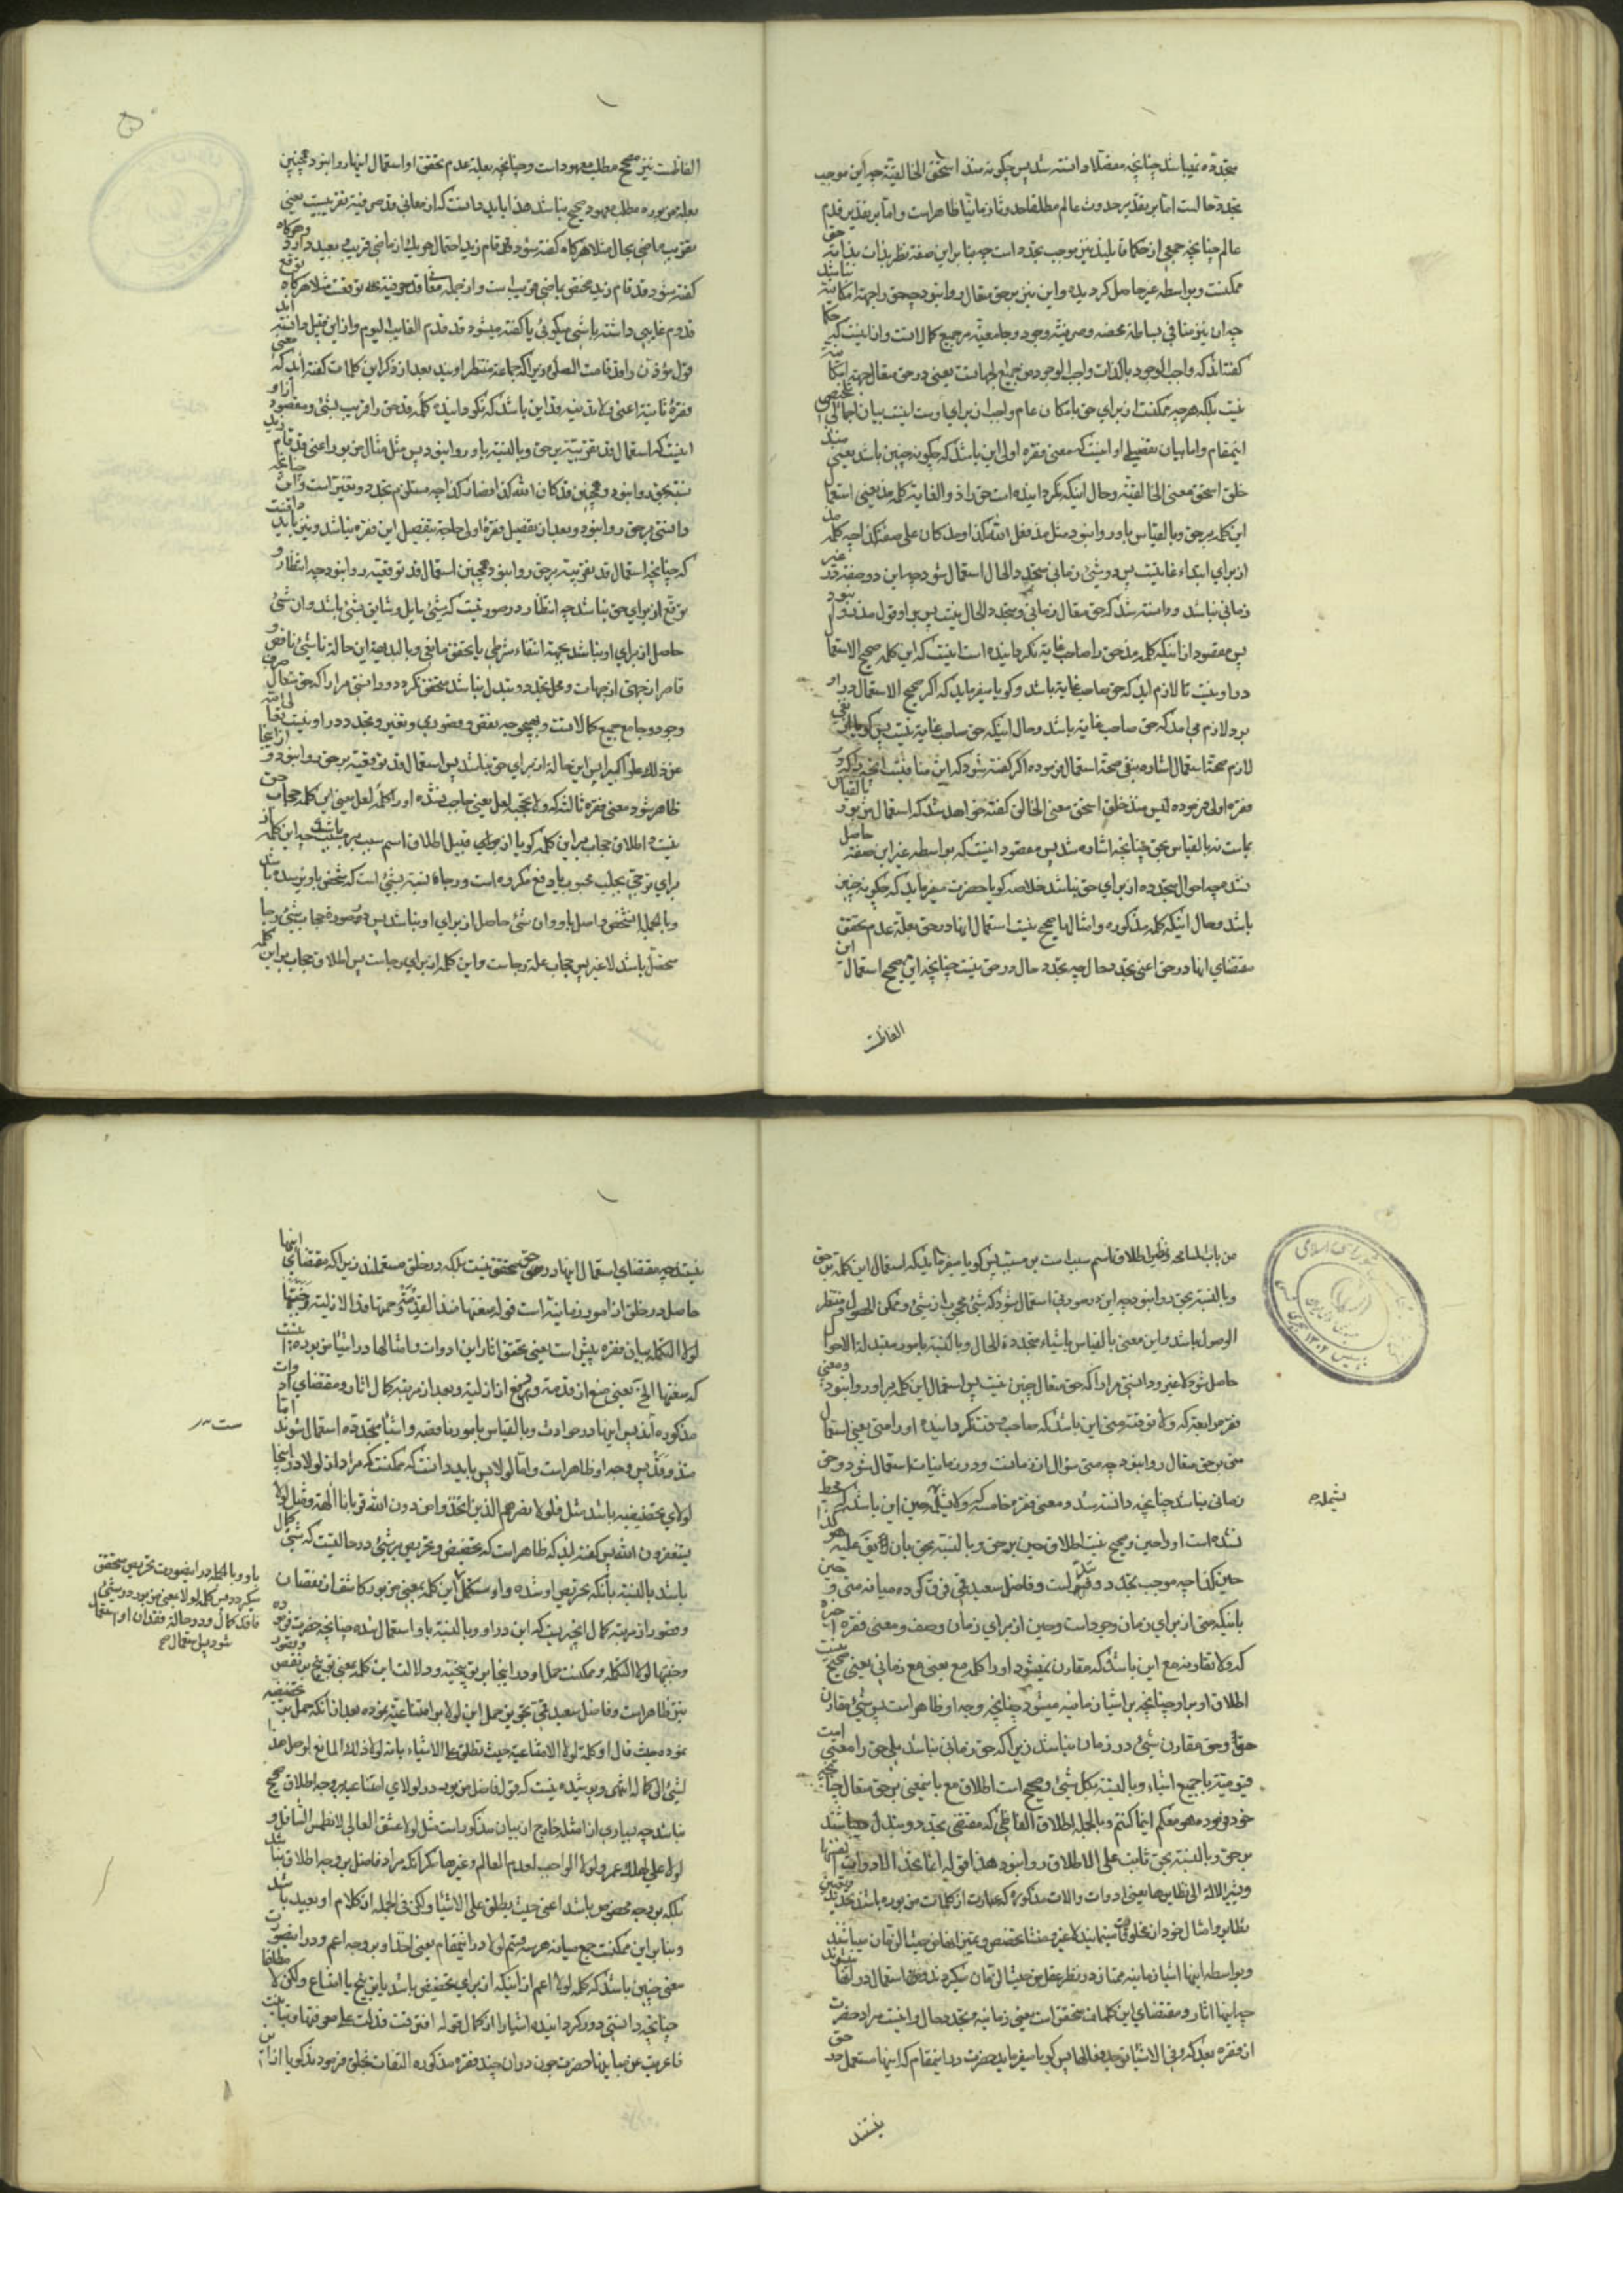 متجدده نمیباشد چنانچه مفصلا دانسته شد پس چگونه منذ استحق الخالقیة چه این موجب
تجدد حالت اما بر تقدیر حدوث عالم مطلقا حدوثا زمانیا ظاهر است و اما بر تقدیر قدم
عالم چنانچه جمعی از حکما قایلند نیز موجب تجدد است چه بنا بر این صفة نظر بذات بذاته حق
ممکنست و بواسطه غیر حاصل کردیده و این نیز بر حق متعال روا نبود چه حق را جهة امکانیة نباشد
چه ان نیز منافی بساطة محضه و صرفیة وجود و جامعیة بر جمیع کمالاتست و از اینست که حکما
گفته‌اند که واجب الوجود بالذات واجب الوجود من جمیع الجهاتست یعنی در حق متعال جهة امکانیة
نیست بلکه هر چه ممکنست از برای حق بامکان عام واجب از برای اوست اینست بیان اجمالی
اینمقام و اما بیان تفصیلی او اینست که معنی فقره اولی این باشد که چگونه چنین باشد یعنی منذ
خلق استحق معنی الخالقیة و حال اینکه نکردانیده است حق را ذو الغایة کلمه مذ یعنی استعمال
این کلمه بر حق و بالقیاس باو روا نبود مثل مذ فعل الله کذا و مذ کان علی صفة کذا چه کلمه مذ
از برای ابتداء غایتست پس در شئ زمانی متجدد الحال استعمال شود چه این دو صفة در غیر
زمانی نباشد و دانسته شد که حق متعال زمانی و متجدد الحال نیست پس بر او قول مذ و منذ نبود
پس مقصود از اینکه کلمه مذ حق را صاحب غایة نکردانیده است اینست که این کلمه صحیح الاستعمال
در او نیست تا لازم اید که حق صاحب غایة باشد و کویا میفرماید که اکر صحیح الاستعمال در او
بود لازم می‌امد که حق صاحب غایة باشد و حال اینکه حق صاحب غایة نیست پس کویا نفی
لازم صحة استعمال اشاره بنفی صحة استعمال فرموده اکر گفته شود که این منافیست انچه را که در
فقره اولی فرموده لیس منذ خلق استحق معنی الخالق گفته خواهد شد که استعمال مزبور بالقیاس
بماست نه بالقیاس بحق چنانچه اشاره شد پس مقصود اینست که بواسطه غیر این صفة حاصل
نشد چه احوال متجدده از برای حق نباشد خلاصه کویا حضرت میفرماید که چگونه چنین
باشد و حال اینکه کلمه مذکوره و امثال ما صحیح نیست استعمال انها در حق بعلة عدم تحقق
مقتضای انها در حق اعنی تجدد حال چه تجدد حال در حق نیست چنانچه این مصحح استعمال این
الفاظست
الفاظست نیز مصحح مطلب معهود است و چنانچه بعلة عدم تحقق او استعمال اینها روا نبود همچنین
بعلة مزبوره مطلب معهود صحیح نباشد هذا باید دانست که از معانی قد حرفیة تقریبست یعنی
تقریب ماضی بحال مثلا هرکاه گفته شود که قام زید احتمال هر یک از ماضی قریب و بعید دارد و هرکاه
گفته شود قد قام زید مختص بماضی قریب است و از جمله معانی قد حرفیة توقعست مثلا هرکاه توقع
قدوم غایبی داشته باشی میکوئی یا گفته میشود قد قدم الغایب الیوم و از این قبیل دانسته اند
قول مؤذن را قد قامت الصلوة زیرا که جماعة منتظر اویند بعد از ذکر این کلمات گفته اند که معنی
فقره ثانیة اعنی و لا تدنیه قد این باشد که نزدیک نکردانیده کلمه قد حق را قریب بشئ و مقصود از او
اینست که استعمال قد تقریبیة بر حق و بالنسبة باو روا نبود پس مثل مثال مزبور اعنی قد قام زید
نسبت بحق روا نبود و همچنین قد کان الله کذا فصار کذا چه مستلزم تجدد و تغیر است و ان چنانچه
دانستی بر حق روا نبود و بعد از تفصیل فقرهٔ اولی حاجة بتفصیل این فقره نباشد و نیز باید دانست
که چنانچه استعمال قد تقریبیة بر حق روا نبود همچنین استعمال قد توقعیة روا نبود چه انتظار و
توقع از برای حق نباشد چه انتظار در صورتیست که شئ مایل و شایق بشئ باشد و ان شئ
حاصل از برای او نباشد بجهة انتفاء شرطی یا تحقق مانعی و بالبدیهة این حالة ناشئ از نقص و
قاصر از جهتی از جهات و محل تجدد و تبدل نباشد متحقق نکردد و دانستی مرارا که حق متعال صرف
وجود و جامع جمیع کمالاتست و بهیچ وجه نقص و قصوری و تغیر و تجدد در او نیست تعالی الله
عن ذلک علوا کبیرا پس این حالة از برای حق نباشد پس استعمال قد توقعیة بر حق روا نبود و از اینجا
ظاهر شود معنی فقره ثالثه که و لا تحجبه لعل یعنی حاجب نشده او را کلمه لعل یعنی این کلمه حجاب حق
نیست و اطلاق حجاب بر این کلمه کویا از قبیل اطلاق اسم سبب بر مسبب باشد چه این کلمه از
برای ترجی بجلب محبوب یا دفع مکروه است و رجا بالنسبة بشئ است که شخص باو نرسیده باشد
و بالجمله ان شخص واصل باو و ان شئ حاصل از برای او نباشد پس در صورة حجاب شئ رجا
متحقق باشد لا غیر پس حجاب علة رجاست و این کلمه از برای رجاست پس اطلاق حجاب بر این کلمه
من باب المسامحه و نظیر اطلاق اسم سبب است بر مسبب پس کویا میفرماید که استعمال این کلمه بر حق
و بالنسبة بحق روا نبود چه این در صورتی استعمال شود که شئ محجوب از شئ و ممکن الحصول و منتظر
الوصول باشد و این معنی بالقیاس باشیاء متجددة الحال و بالنسبة بامور متبدلة الاحوال
حاصل شود لا غیر و دانستی مرارا که حق متعال چنین نیست پس استعمال این کلمه بر او روا نبود و معنی
فقره رابعه که و لا توقته متی این باشد که صاحب وقت نکردانیده او را متی یعنی استعمال
متی بر حق متعال روا نبود چه متی سؤال از زمانست و در زمانیات استعمال شود و حق
زمانی نباشد چنانچه دانسته شد و معنی فقره خامسه که و لا تشمله حین این باشد که محیط
نشده است او را حین و صحیح نیست اطلاق حین بر حق و بالنسبة بحق بان یقال علیه هو کذا
حین کذا چه موجب تجدد و تبدل است و فاضل سعید قمی فرق کرده میانه متی و حین
باینکه متی از برای زمان وجود است و حین از برای زمان وصف و معنی فقره اخیره
که و لا تقارنه مع این باشد که مقارن نمیشود او را کلمه مع یعنی مع زمانی یعنی صحیح نیست
اطلاق او بر او چنانچه بر اشیا زمانیه میشود چنانچه وجه او ظاهر است پس شئ مقارن
حق و حق مقارن شئ در زمان نباشد زیرا که حق زمانی نباشد بلی حق را معیتی است
قیومیة با جمیع اشیاء و بالنسبة بکل شئ و صحیح است اطلاق مع باینمعنی بر حق متعال چنانچه
خود فرموده و هو معکم اینما کنتم و بالجمله اطلاق الفاظی که مقتضی تجدد و تبدل میباشند
بر حق و بالنسبة بحق ثابت علی الاطلاق روا نبود هذا قوله انما تحد الادوات انفسها
و تشیر الالة الی نظایرها یعنی ادوات و الات مذکوره که عبارت از کلمات مزبوره باشند تحدید و تعیین
نظایر و امثال خود از مخلوقات مینمایند لا غیر
و بواسطه اینها اشیا زمانیه ممتاز در نظر عقل
چه اینها اثار و مقتضای این کلمات متحقق است یعنی زمانیة و تجدد حال و اینست مراد حضرت
از فقره بعد که و فی الاشیاء یوجد فعالها پس کویا میفرماید حضرت در اینمقام که اینها مستعمل در حق
نیستند
تشمله ح
نیستند چه مقتضای استعمال اینها در حق متحقق نیست بلکه در خلق مستعملند زیرا که مقتضای اینها
حاصل در خلق از امور زمانیة است قوله منعتها منذ القدمة و حمتها قد الازلیة و جنبتها
لولا التکملة بیان فقره پیش است یعنی تحقق اثار این ادوات و امثالها در اشیا مزبوره اینست
که منعتها الخ یعنی منع از قدمة و دفع از ازلیة و بعد از مرتبه کمال اثار و مقتضای ادوات
مذکوره‌اند پس اینها در حوادث و بالقیاس بامور ناقصه و اشیا متجدده استعمال شوند اما
منذ و قد پس وجه او ظاهر است و اما لولا پس باید دانست که ممکنست که مراد از لولا در اینجا
لولای تحضیضیه باشد مثل فلولا نصرهم الذین اتخذوا من دون الله قربانا الهة و مثل لولا
یستغفرون الله پس گفته اید که ظاهر است که تحضیض و تحریص بر شئ در حالتیست که شئ کمال
باشد بالنسبة بانکه تحریص او شده و او مستکمل این کلمه بمعنی مزبور کاشف از نقصان
و قصور از مرتبه کمال انچه‌ایست که این در او و بالنسبة باو استعمال شده چنانچه حضرت فرموده
و جنبتها لولا التکملة و ممکنست حمل او در اینجا بر توبیخیة و دلالت این کلمه بمعنی توبیخ بر نقص و قصور
نیز ظاهر است و فاضل سعید قمی تجویز حمل این لولا بر امتناعیة نموده بعد از انکه حمل بر تحضیضیه
نموده حیث قال او کلمة لولا الامتناعیة حیث تطلق علی الاشیاء بانه لولا ذلک المانع لوصل هذا
الشئ الی کماله انتهی و پوشیده نیست که قول فاضل مزبور در لولای امتناعیه بر وجه اطلاق صحیح
نباشد چه بسیاری از امثله خارج از بیان مذکور است مثل لولا عشق العالی لانطمس السافل و
لولا علی لهلک عمر و لولا الواجب لعدم العالم و غیرها مکر انکه مراد فاضل بر وجه اطلاق نباشد
بلکه بر وجه مخصوص باشد اعنی حیث یطلق علی الاشیاء و لکن فی الجمله از کلام او بعید باشد
و بنا بر این ممکنست جمع میانه هر سه قسم لولا در اینمقام یعنی اخذ او بر وجه اعم و در اینصورت
معنی چنین باشد که کلمه لولا اعم از اینکه از برای تحضیض باشد یا توبیخ یا امتناع و لکن لا مطلقا
چنانچه دانستی دور کردانیده اشیا را از کمال قوله افترقت فدلت علی مفرقها و تباینت
فاعربت عن مباینها حضرت چون در ان چند فقره مذکوره التفات بخلق فرمودند کویا از این
باو و بالجمله در اینصورت تحریص متحقق
نمیکردد پس کلمه لولا بمعنی مزبور در شئ
فاقد کمال و در حالة فقدان او استعمال
شود پس استعمال ح